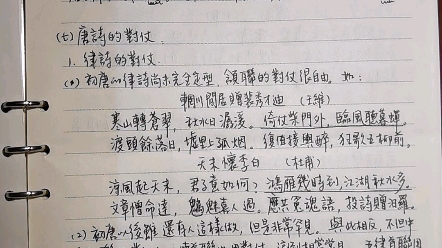 (七) 唐詩的對仗.
1. 律詩的對仗.
(*) 初唐の律詩尚未完全定型, 頷聯的對仗很自由. 如:
輞川閒居贈裴秀才迪 (王維)
寒山轉蒼翠, 秋水日潺湲. 倚仗柴門外, 臨風聽暮蟬.
渡頭餘落日, 墟里上孤烟. 復值接輿醉, 狂歌五柳前.
天末懷李白 (杜甫)
涼風起天末, 君子意如何? 鴻雁幾時到, 江湖秋水多.
文章憎命達, 魑魅喜人過. 應共冤魂語, 投詩贈汨羅.
(2) 初唐以後雖還有人這樣做, 但是非常罕見. 與此相反, 不但中